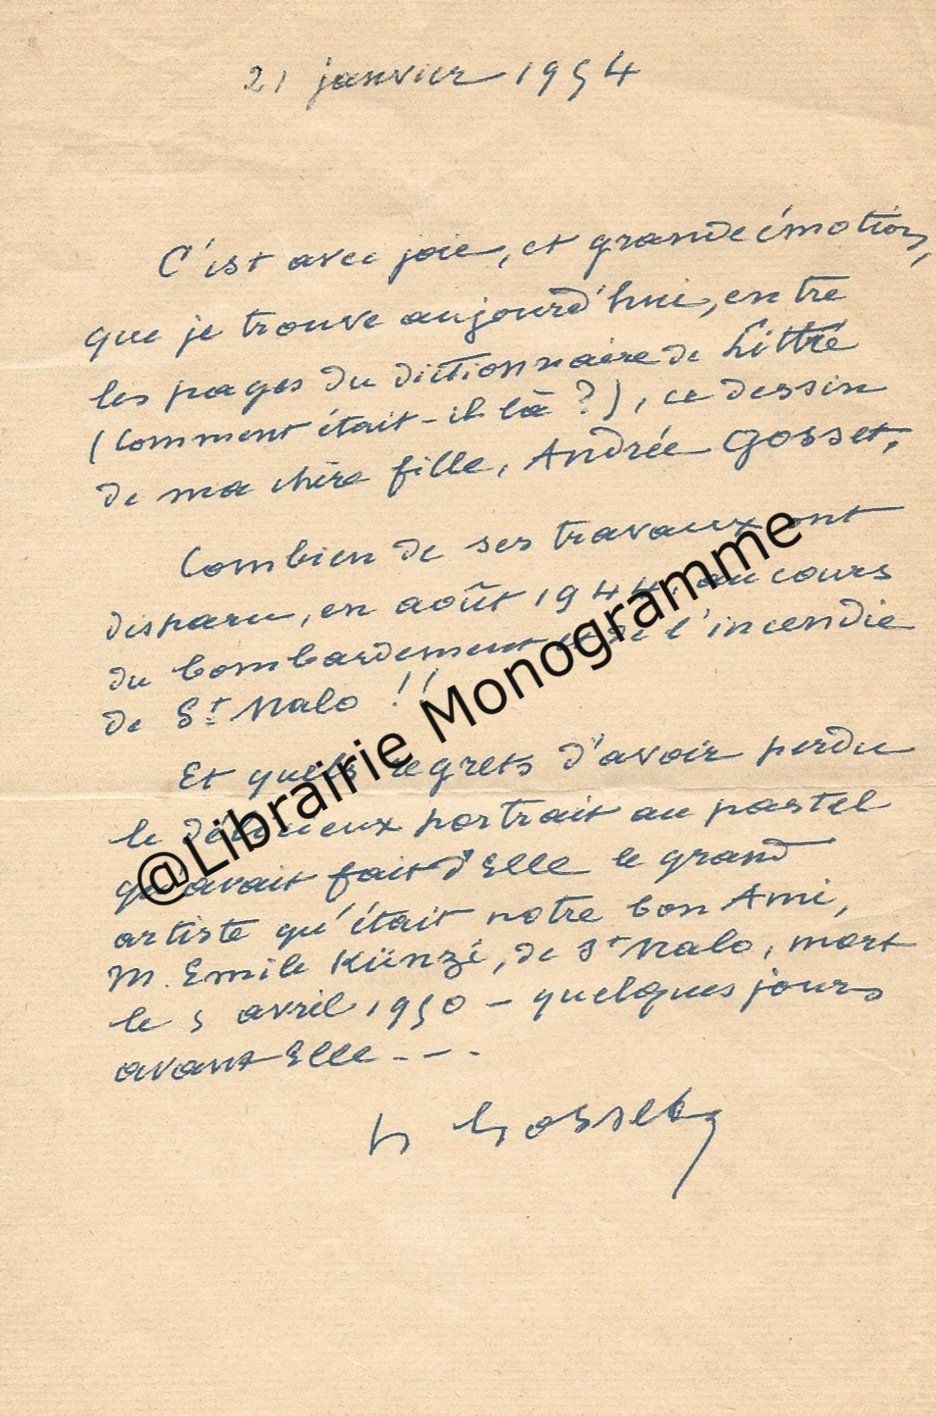 21 janvier 1954
C'est avec joie, et grande émotion,
que je trouve aujourd'hui, entre
les pages du dictionnaire de Littré
(Comment était-il là ?), ce dessin
de ma chère fille, Andrée Gosset.
Combien de ses travaux ont
disparu, en août 1944, au cours
du bombardement et de l'incendie
de St Malo !!
Et quels regrets d'avoir perdu
le délicieux portrait au pastel
qu'avait fait d'Elle le grand
artiste qu'était notre bon Ami,
M. Emile Künzé, de St Malo, mort
le 5 avril 1950 - quelques jours
avant Elle - - -
Gosset
@Librairie Monogramme